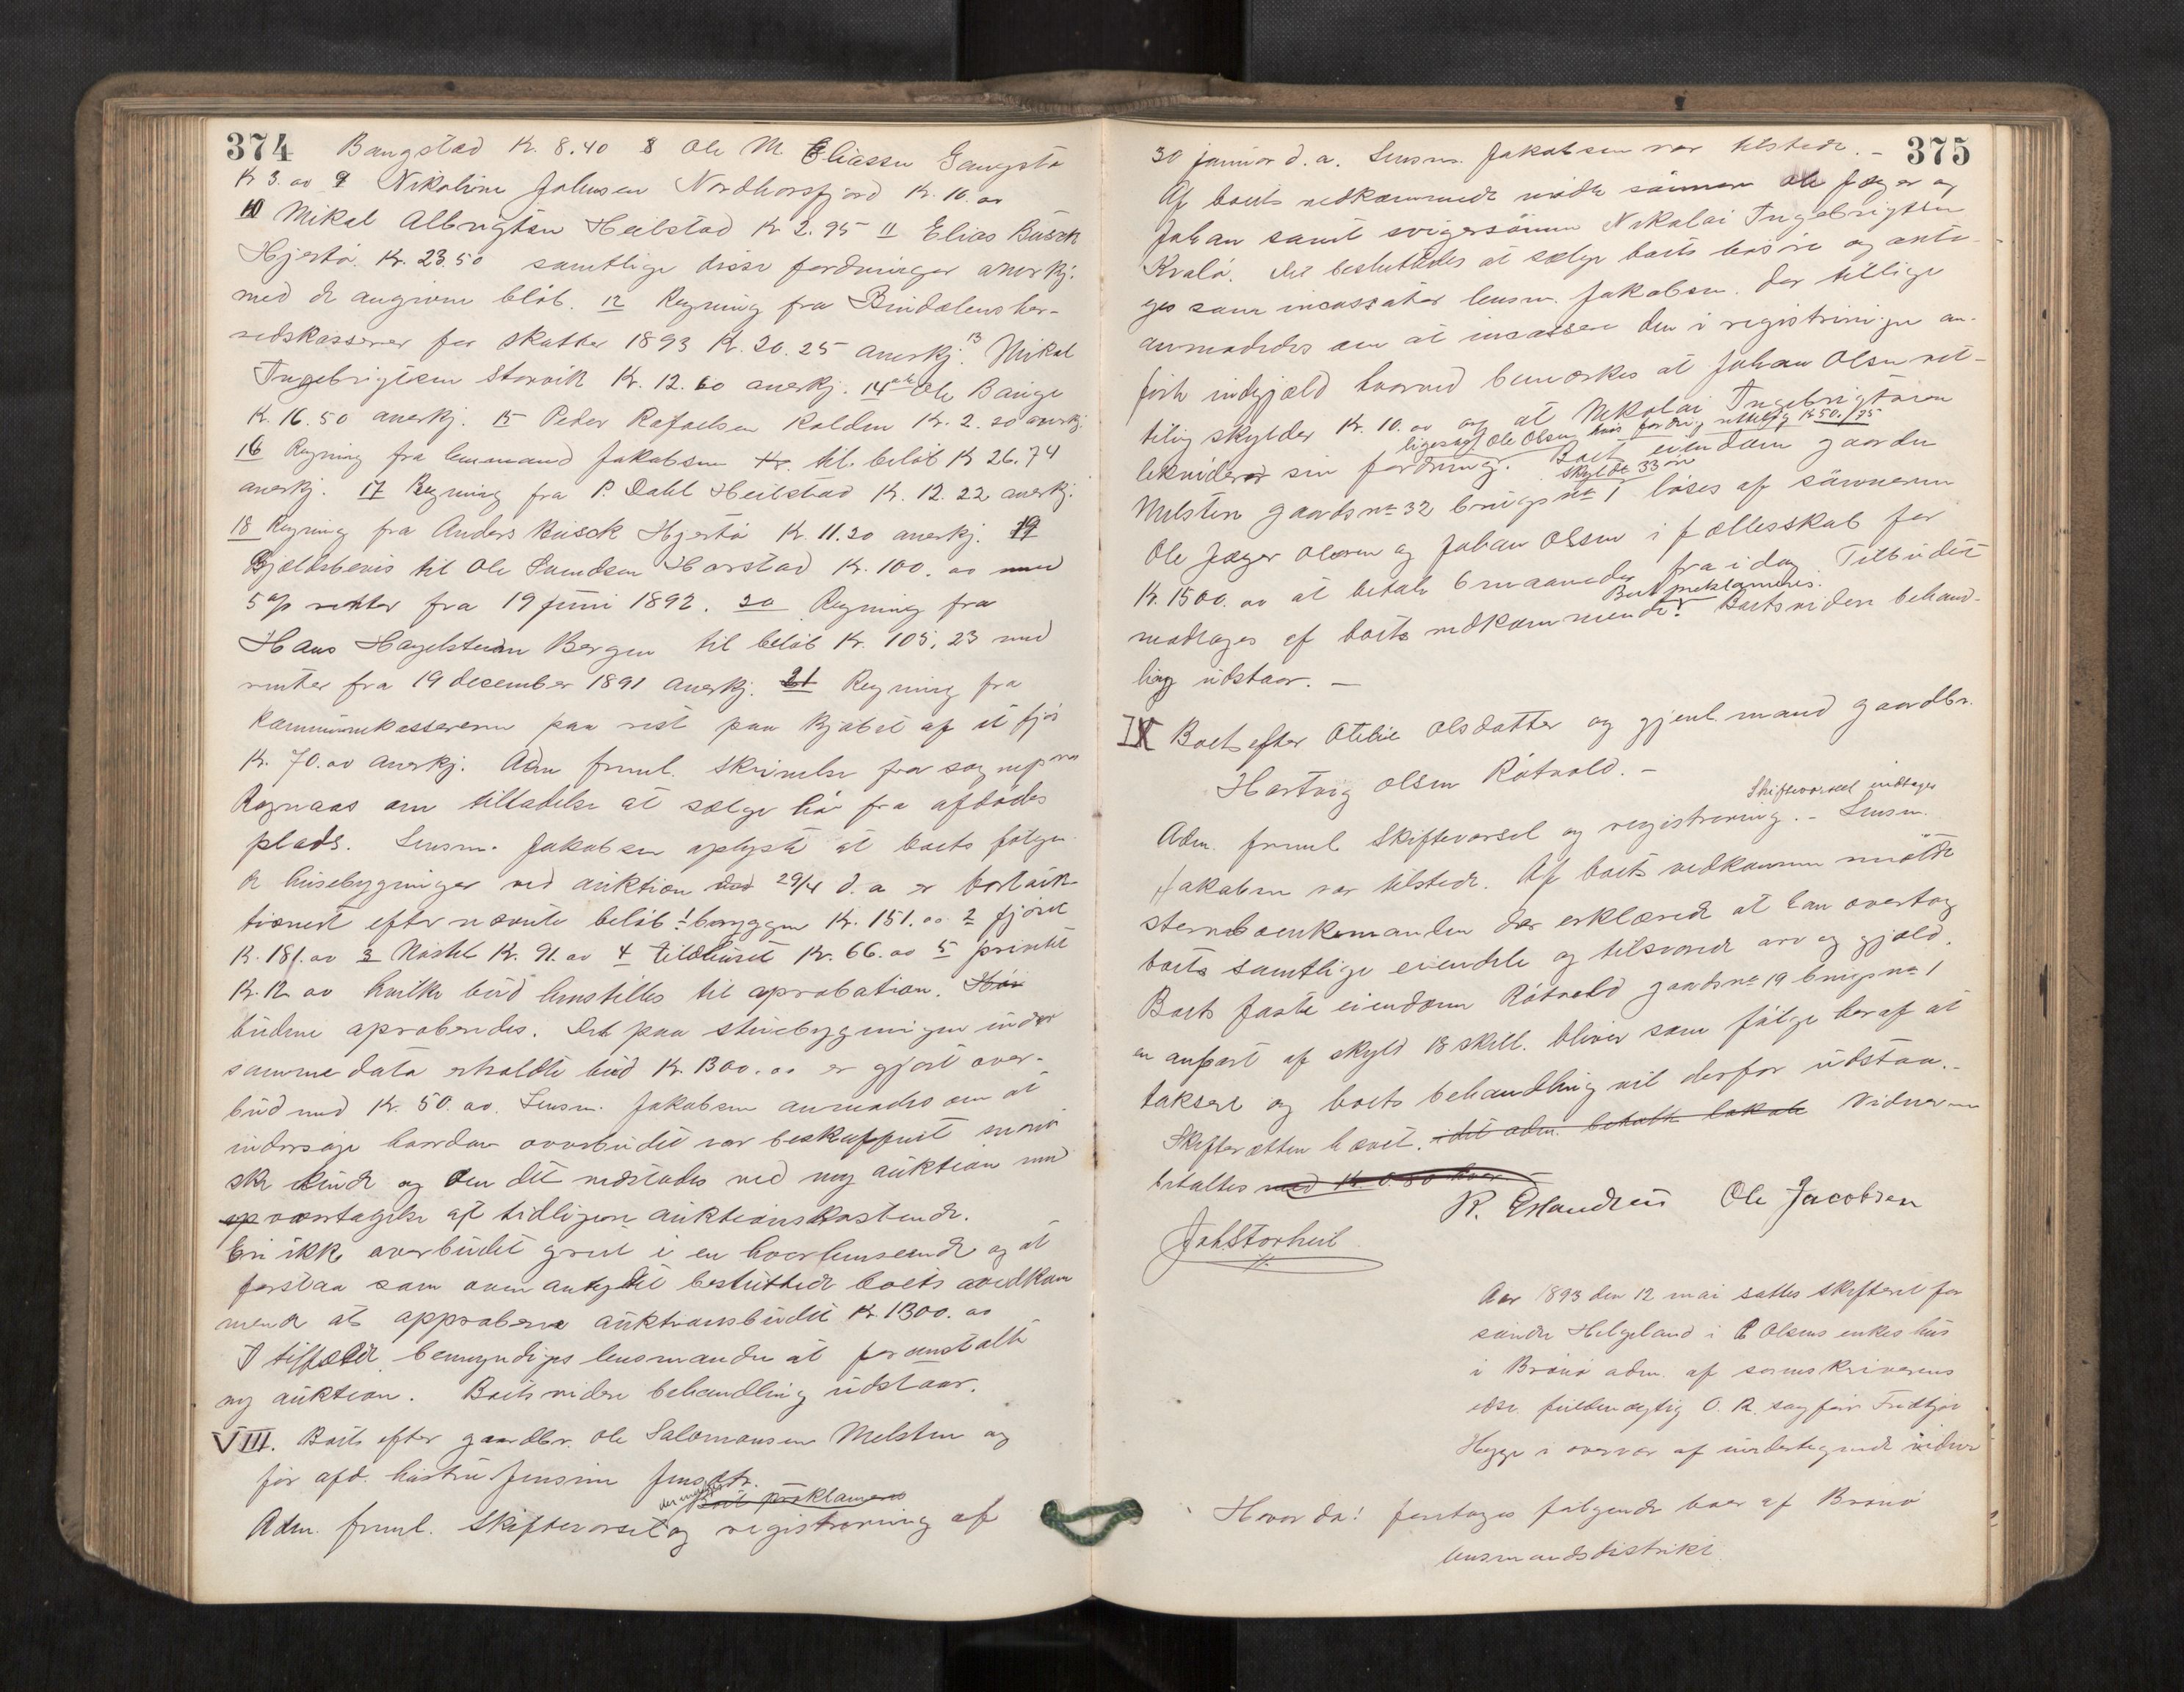 374 Bangstad Kr. 8.40 8 Ole M. Eliassen Gangstø
Kr 3.00 9 Nikoline Johnsen Nordhorsfjord Kr. 10.00
10 Mikal Albrigtsen Heilstad Kr 2.95 11 Elias Busch
Hjertø. Kr. 23.50 samtlige disse fordringer anerkj.
med de angivne bløb. 12 Regning fra Bindalens her-
redskasserer for skatter 1893 Kr. 20.25 anerkj. 13 Mikal
Ingebrigtsen Storvik Kr. 12.60 anerkj. 14 Ole Bange
Kr. 16.50 anerkj. 15 Peder Rafaelsen Kalden Kr. 2.20 anerkj.
16 Regning fra lensmand Jakobsen Kr. til beløb Kr 26.74
anerkj. 17 Regning fra P. Dahl Heilstad Kr. 12.22 anerkj.
18 Regning fra Anders Busck Hjertø Kr. 11.20 anerkj. 19
Gjældsbevis til Ole Svendsen Harstad Kr. 100.00 med
5 % renter fra 19 juni 1892. 20 Regning fra
Hans Hagelsteen Bergen til beløb Kr. 105,23 med
renter fra 19 december 1891 anerkj. 21 Regning fra
Kommunekassereren paa rest paa kjøbet af et fjøs
Kr. 70.00 anerkj. Adm freml. skrivelse fra sogneprest
Rognaas om tilladelse at sælge hø fra afdødes
plads. Lensm. Jakobsen oplyste at boets følgen-
de husebygninger ved auktion 29/4 d.a er bortauk-
tioneret efter nævnte beløb 1 bryggen Kr. 151.00 2 fjøset
Kr. 181.00 3 Nøstet Kr. 91.00 4 ildhuset Kr. 66.00 5 privetet
Kr. 12.00 hvilke bud henstilles til aprobation.
budene aproberedes. Det paa stuebygningen under
samme dato erholdte bud Kr. 1300.00 er gjort over-
bud med Kr. 50.00. Lensm. Jakobsen anmodes om at
undersøge hvordan overbudet var beskaffent
ske kunde og om det nedstedes ved ny auktion med
overtagelse af tidligere auktionskostende.
Er ikke overbudet greit i en hver henseende og at
forstaa som oven antydet besluttede boets vedkom
mende at approbere auktionsbudet Kr. 1300.00
I tilfælde bemyndiges lensmanden at foranstalte
ny auktion. Boets videre behandling udstaar.
VIII. Boet efter gaardbr. Ole Salomonsen Melsten og
før afd. hustru Jensine Jensdtr.
Boet proklameres
Adm. freml. Skiftevarsel og registrering af
375
30 januar d.a. Lensm. Jakobsen var tilstede. –
Af boets vedkommende mødte sønnen Ole Jæger og
Johan samt svigersønnen Nikolai Ingebrigtsen
Kvalø. Det besluttedes at sælge boets løsøre og anta-
ges som incassator lensm. Jakobsen. der tillige
anmodedes om at incassere den i registreringen an-
førte indgjæld hvorved bemærkes at Johan Olsen ret-
telig skylder Kr. 10.00 og at Nikolai Ingebrigtsen
ligesaa Ole Olsen hvis fordring rettelig Kr 50.75
likviderer sin fordring. Boets eiendom gaarden
skyldt 33 øre
Melsten gaards no 32 brugs no 1 løses af sønnerne
Ole Jæger Olsen og Johan Olsen i fællesskab for
Kr. 1500.00 at betale 6 maaneder fra i dag. Tilbudet
Boet proklameres.
modtages af boets vedkommende. Boets videre behand-
ling udstaar. –
IX Boet efter Otelie Olsdatter og gjenl. mand gaardbr.
Hartvig Olsen Røtvold. –
Skiftevarsel indtages
Adm. freml Skiftevarsel og registrering. – Lensm.
Jakobsen var tilstede. Af boets vedkommen mødte
stervboenkemanden der erklærede at han overtog
boets samtlige eiendele og tilsvarede arv og gjæld.
Boets faste eiendom Røtvold gaards no 19 brugs no 1
en anpart af skyld 18 skill. bliver som følge heraf at
taksere og boets behandling vil derfor udstaa. –
Skifteretten hævet. idet adm. betalte lokale Vidnerne
betaltes med Kr 0.50 hver
R. Erlandsen Ole Jacobsen
Joh Storheil
Aar 1893 den 12 mai sattes skifteret for
søndre Helgeland i P Olsens enkes hus
i Brønø adm. af sorenskriverens
edsv. fuldmægtig O. R. sagfør Fridtjov
Hegge i overvær af undertegnede vidner
Hvorda! foretoges følgende boer af Brønø
lensmandsdistrikt